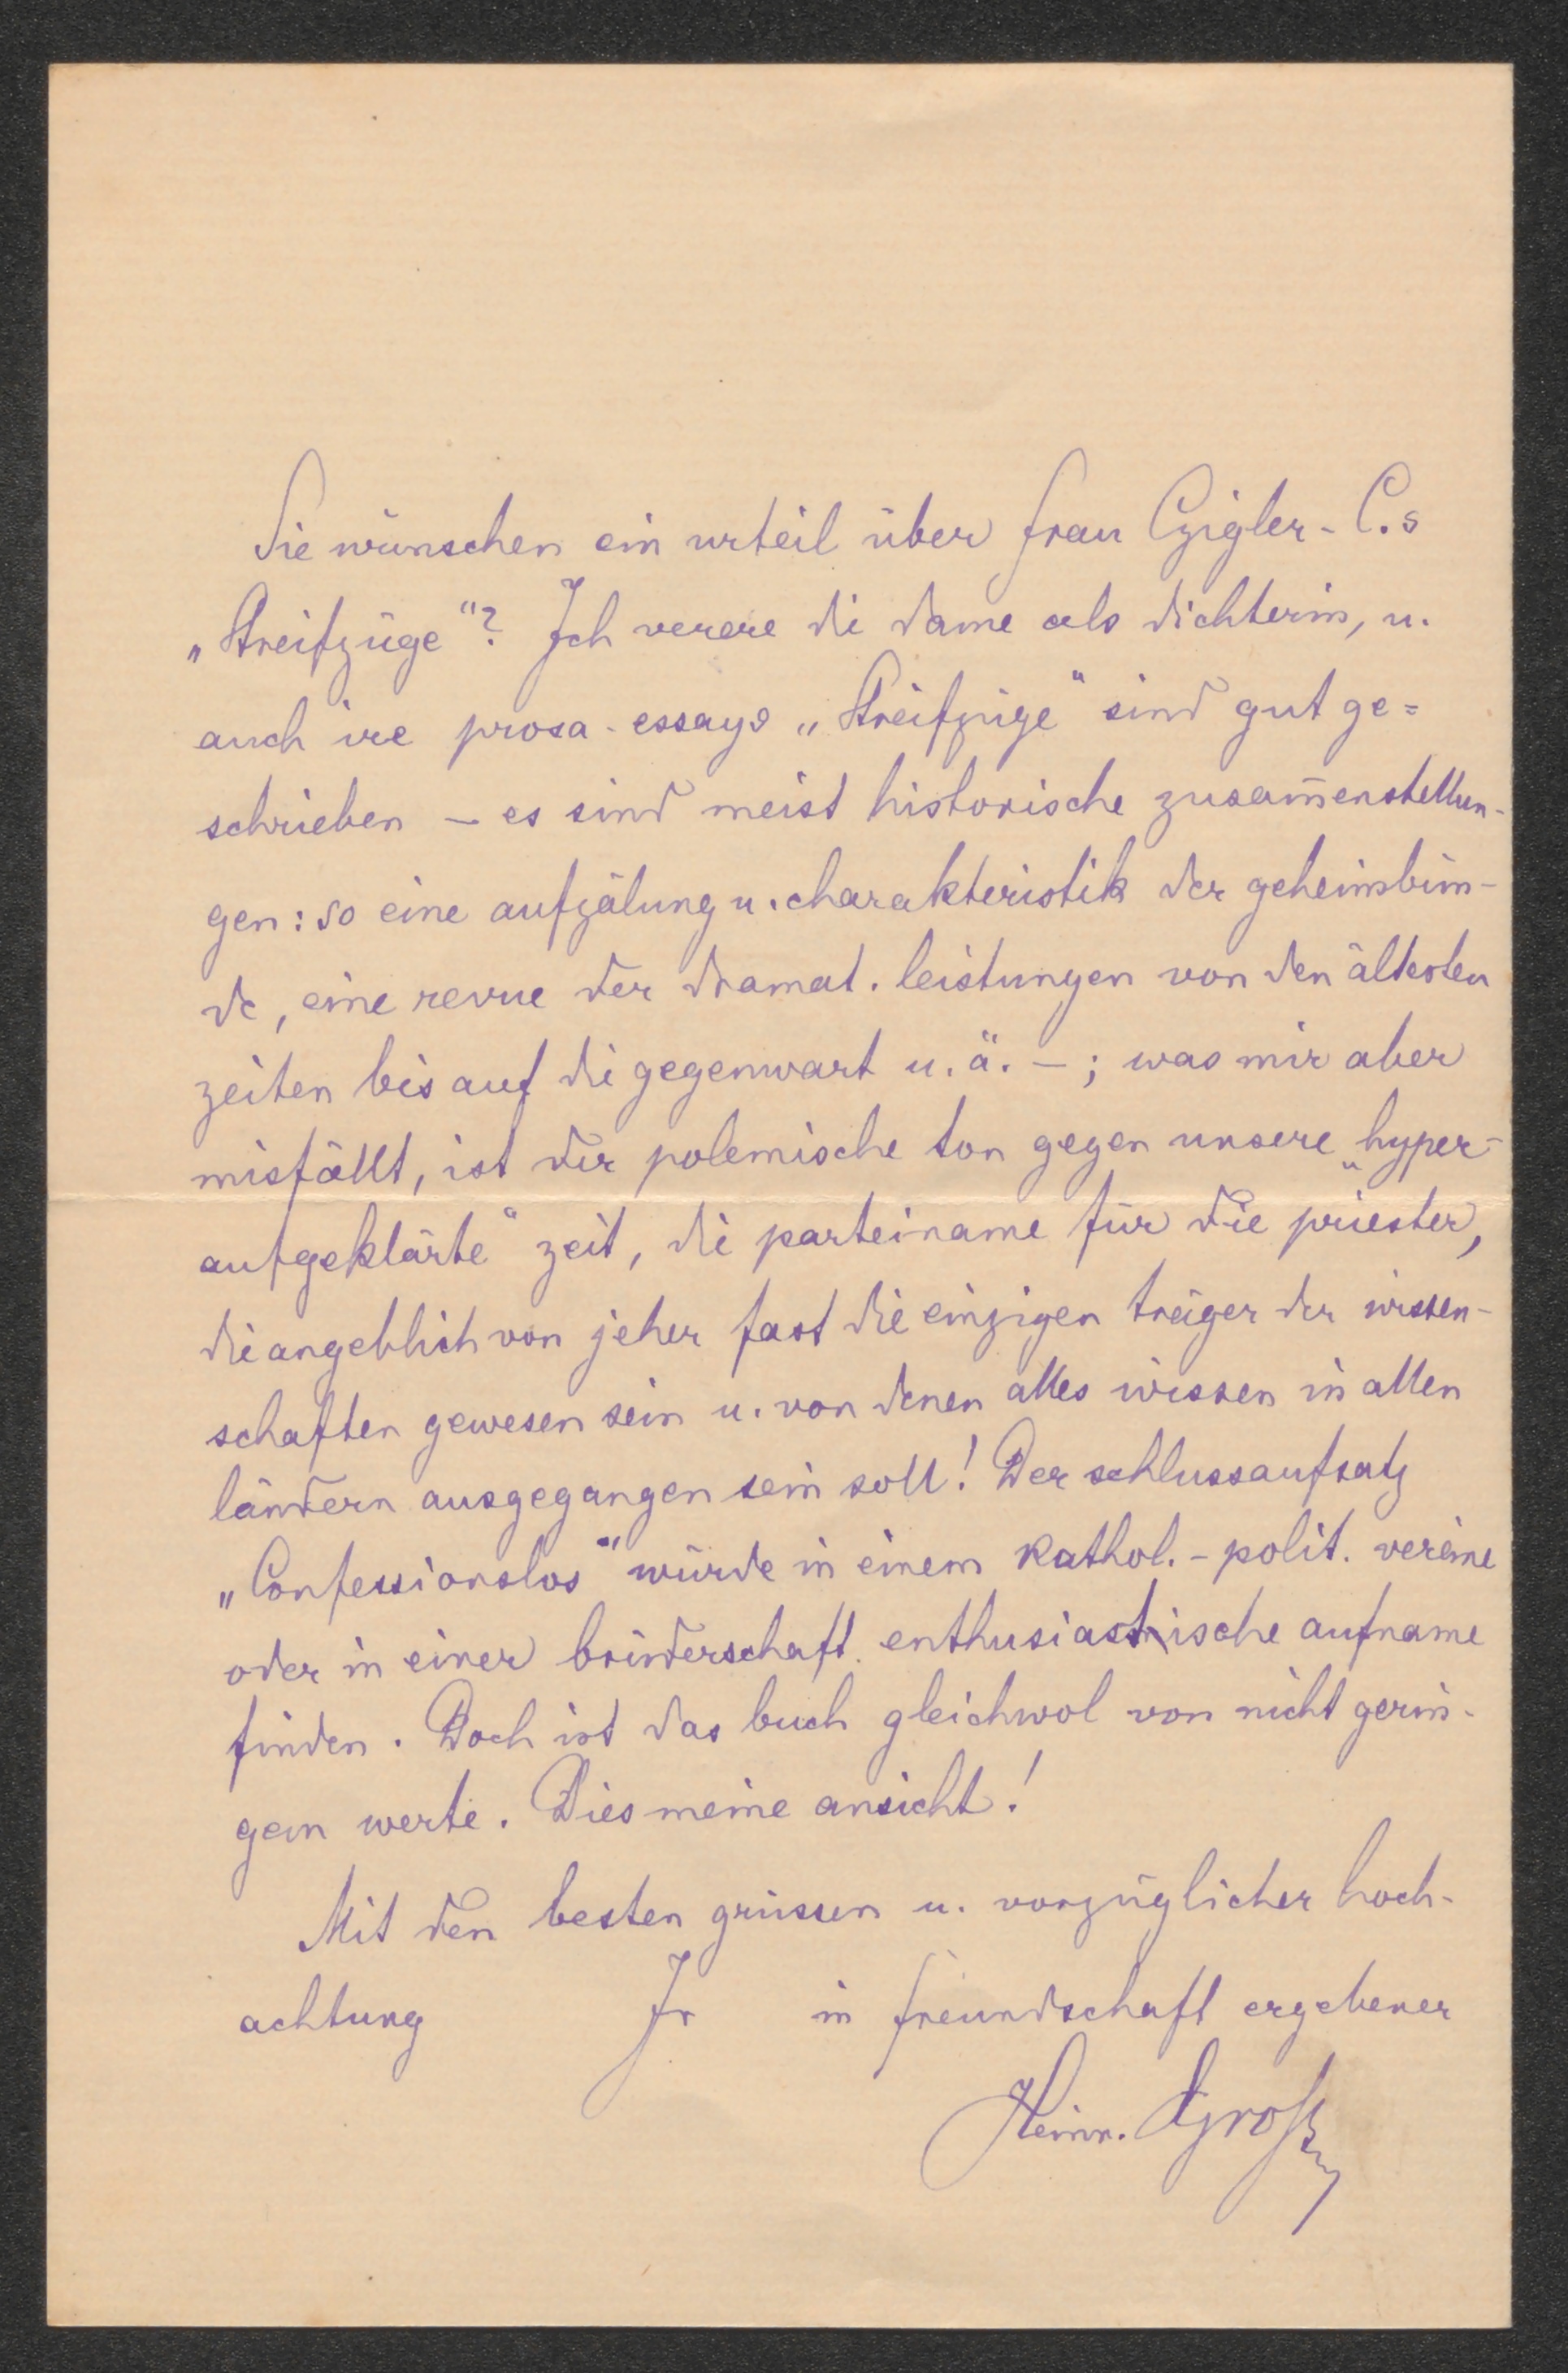 Sie wünschen ein urteil über frau Czigler-C.s
„Streifzüge“? Ich verere di dame als dichterin, u.
auch ire prosa-essays „Streifzüge“ sind gut ge=
schrieben – es sind meist historische zusam̄enstellun-
gen: so eine aufzälung u. charakteristik der geheimbün-
de, eine revue der dramat. leistungen von den ältesten
zeiten bis auf di gegenwart u. ä. – ; was mir aber
misfällt, ist der polemische ton gegen unsere „hyper-
aufgeklärte“ zeit, di parteiname für die priester,
die angeblich von jeher fast die einzigen träger der wissen-
schaften gewesen sein u. von denen alles wissen in allen
ländern ausgegangen sein soll! Der schlussaufsatz
„Confessionslos“ würde in einem kathol.-polit. vereine
oder in einer brüderschaft enthusiastische aufname
finden. Doch ist das buch gleichwol von nicht gerin-
gem werte. Dies meine ansicht!
Mit den besten grüssen u. vorzüglicher hoch-
achtung Ir in freundschaft ergebener
Heinr. Groß